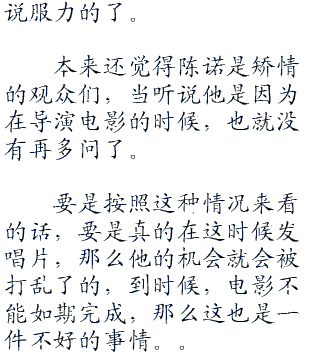 说服力的了。
本来还觉得陈诺是矫情
的观众们，当听说他是因为
在导演电影的时候，也就没
有再多问了。
要是按照这种情况来看
的话，要是真的在这时候发
唱片，那么他的机会就会被
打乱了的，到时候，电影不
能如期完成，那么这也是一
件不好的事情。。